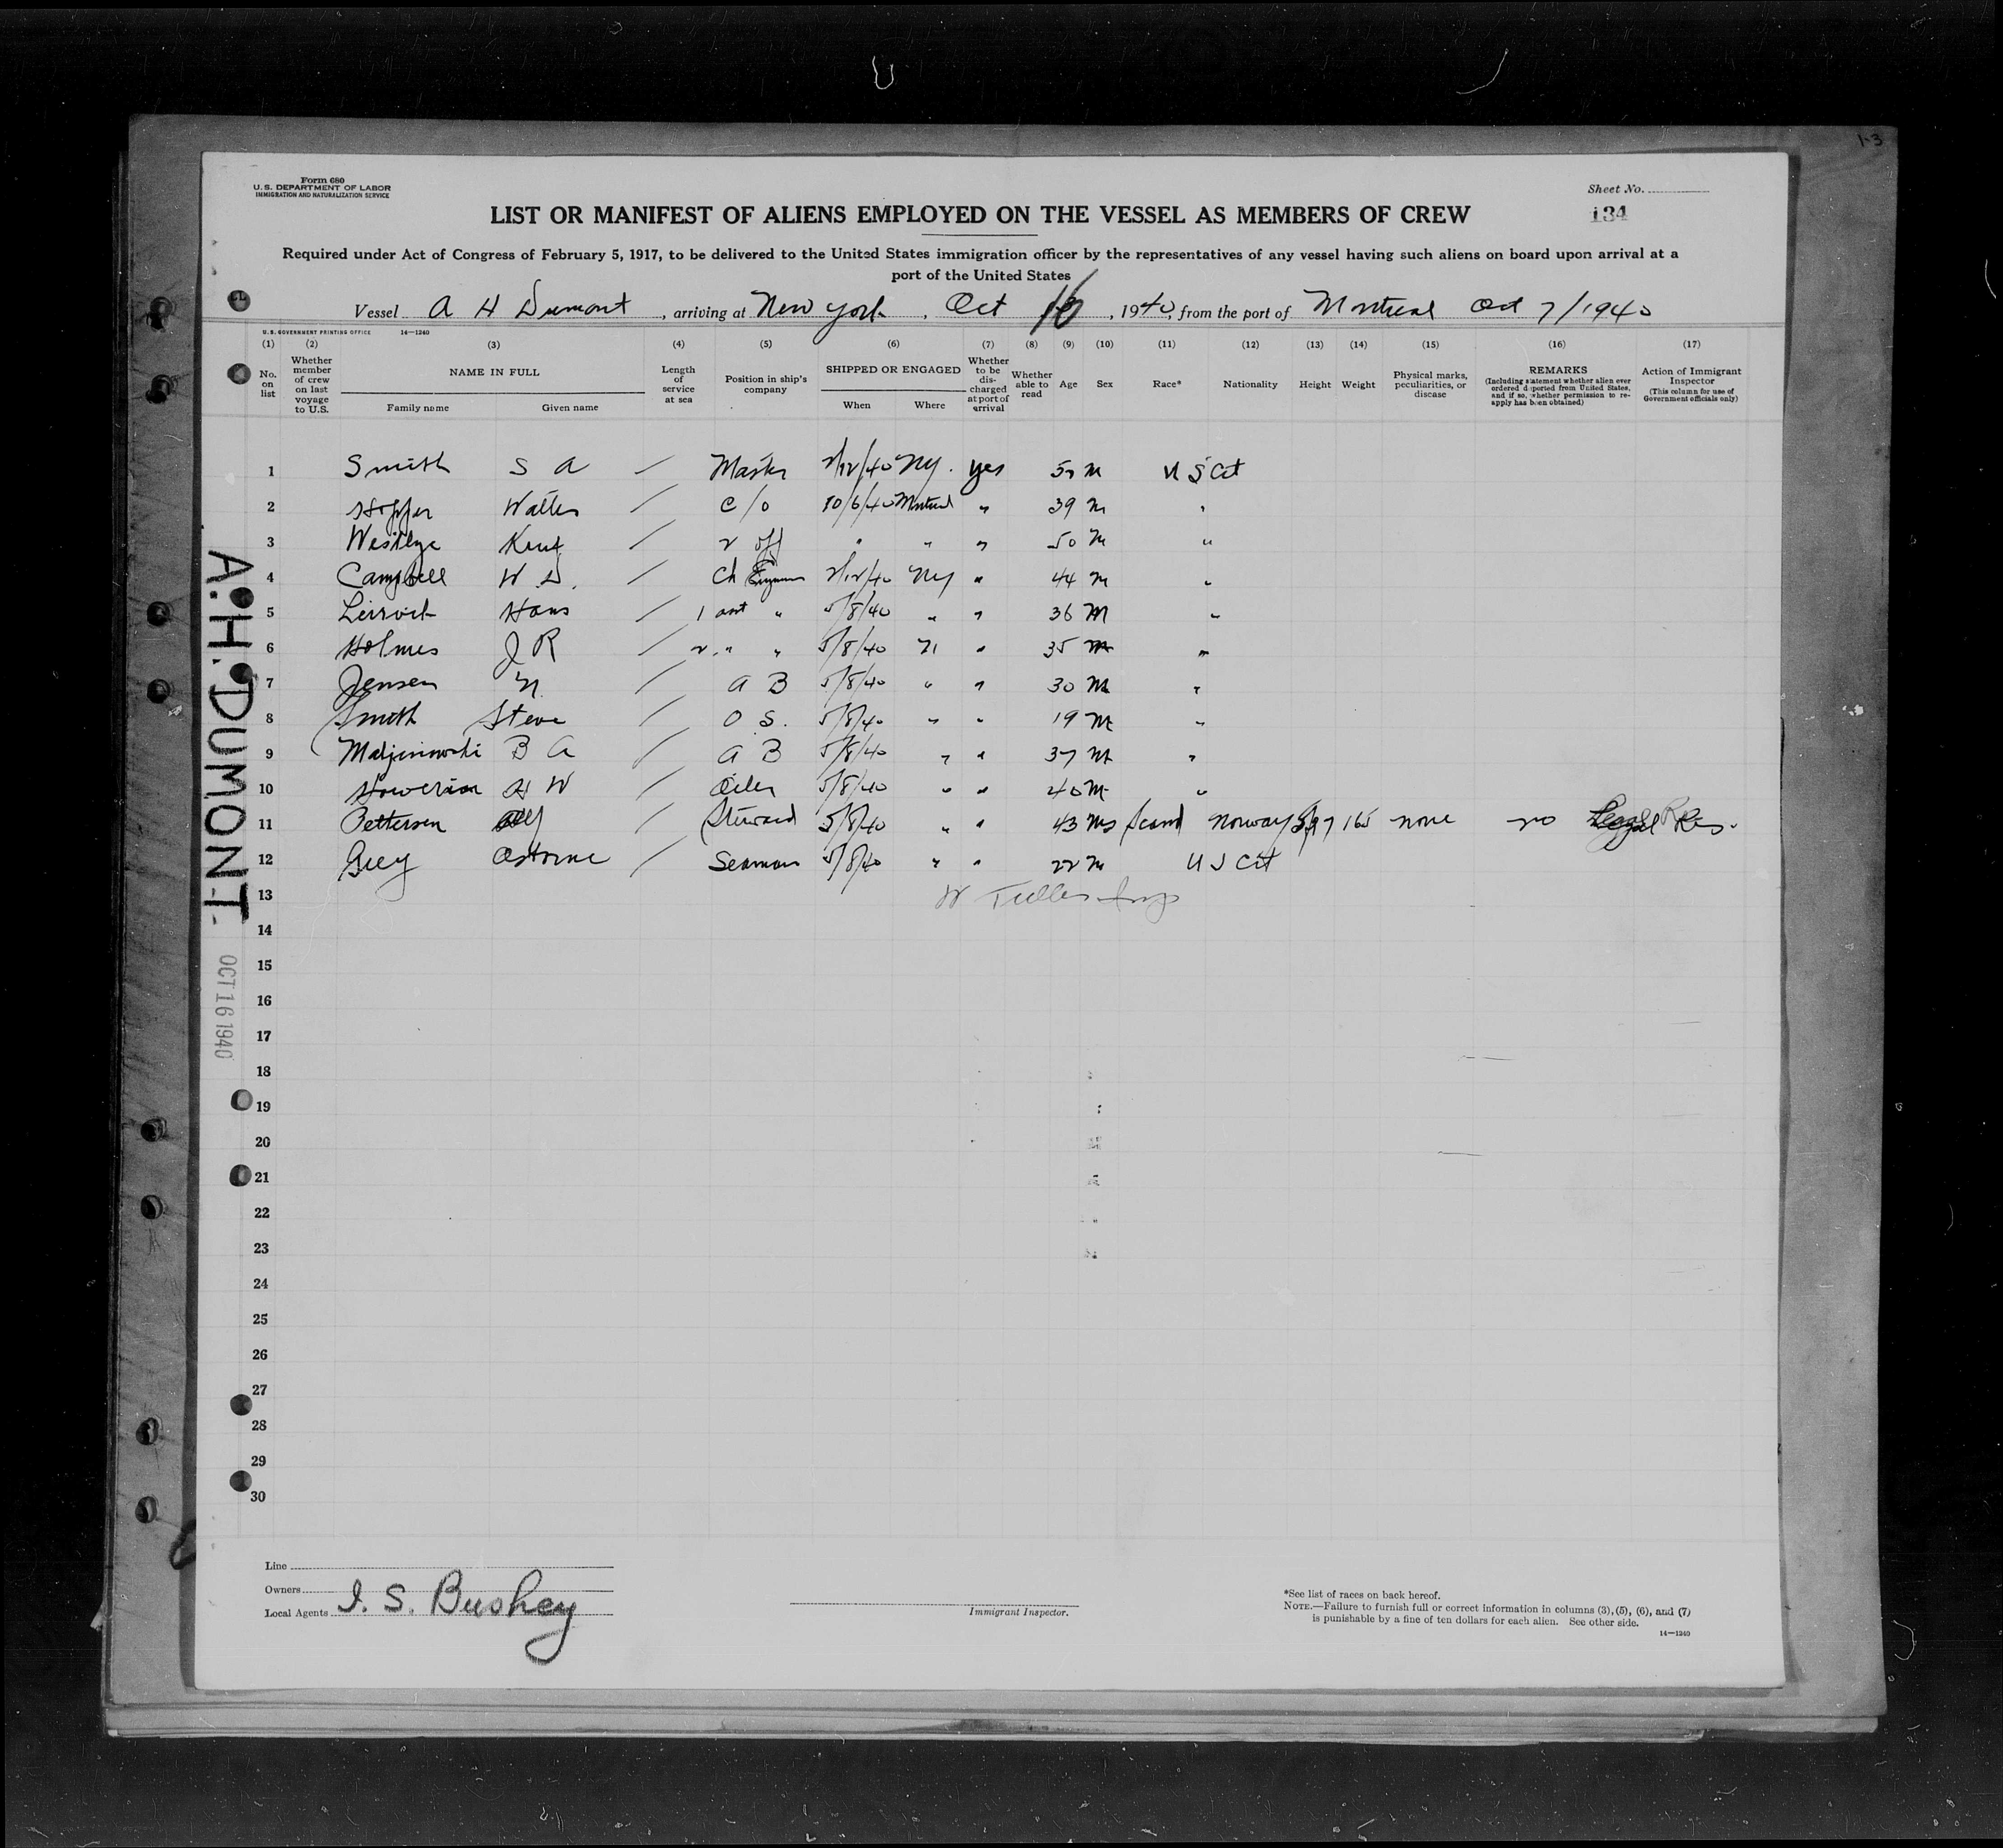 1-3
Form 680
U. S. DEPARTMENT OF LABOR
IMMIGRATION AND NATURALIZATION SERVICE
Sheet No.
134
LIST OR MANIFEST OF ALIENS EMPLOYED ON THE VESSEL AS MEMBERS OF CREW
Required under Act of Congress of February 5, 1917, to be delivered to the United States immigration officer by the representatives of any vessel having such aliens on board upon arrival at a
port of the United States
Vessel A H Dumont, arriving at New York, Oct 16, 1940, from the port of Montreal Oct 7/1940
U. S. GOVERNMENT PRINTING OFFICE 14—1240
(1) (2) (3) (4) (5) (6) (7) (8) (9) (10) (11) (12) (13) (14) (15) (16) (17)
No. on list
Whether member of crew on last voyage to U.S.
NAME IN FULL
Family name Given name
Length of service at sea
Position in ship's company
SHIPPED OR ENGAGED
When Where
Whether to be discharged at port of arrival
Whether able to read
Age Sex Race* Nationality Height Weight
Physical marks, peculiarities, or disease
REMARKS
(Including statement whether alien ever ordered deported from United States, and if so, whether permission to reapply has been obtained)
Action of Immigrant Inspector
(This column for use of Government officials only)
1 Smith S A / Master 2/12/40 NY. yes M U S Cit
2 Hopper Walter / C/O 10/6/40 Montreal " 39 M "
3 / 2 off " " " 50 M "
4 Campbell W D. / Ch Engineer 2/12/40 NY " 44 M "
5 Hans / 1 asst " 5/8/40 " " 36 M "
6 Holmes J R / 2 " " 5/8/40 " " 35 M "
7 Jensen N. / A B 5/8/40 " " 30 M "
8 Smith Steve / O S. 5/8/40 " " 19 M "
9 B A / A B 5/8/40 " " 37 M "
10 H W / Oiler 5/8/40 " " 40 M "
11 Pettersen Steward 5/8/40 " " 43 M Scand Norway 165 none no Legal Res.
12 Guy Osborne / Seaman 5/8/40 " " 22 M U S Cit
13
14
15
16
17
18
19
20
21
22
23
24
25
26
27
28
29
30
A.H. DUMONT.
OCT 16 1940
Line
Owners
Local Agents I. S. Bushey
Immigrant Inspector.
*See list of races on back hereof.
NOTE.—Failure to furnish full or correct information in columns (3), (5), (6), and (7)
is punishable by a fine of ten dollars for each alien. See other side.
14—1240